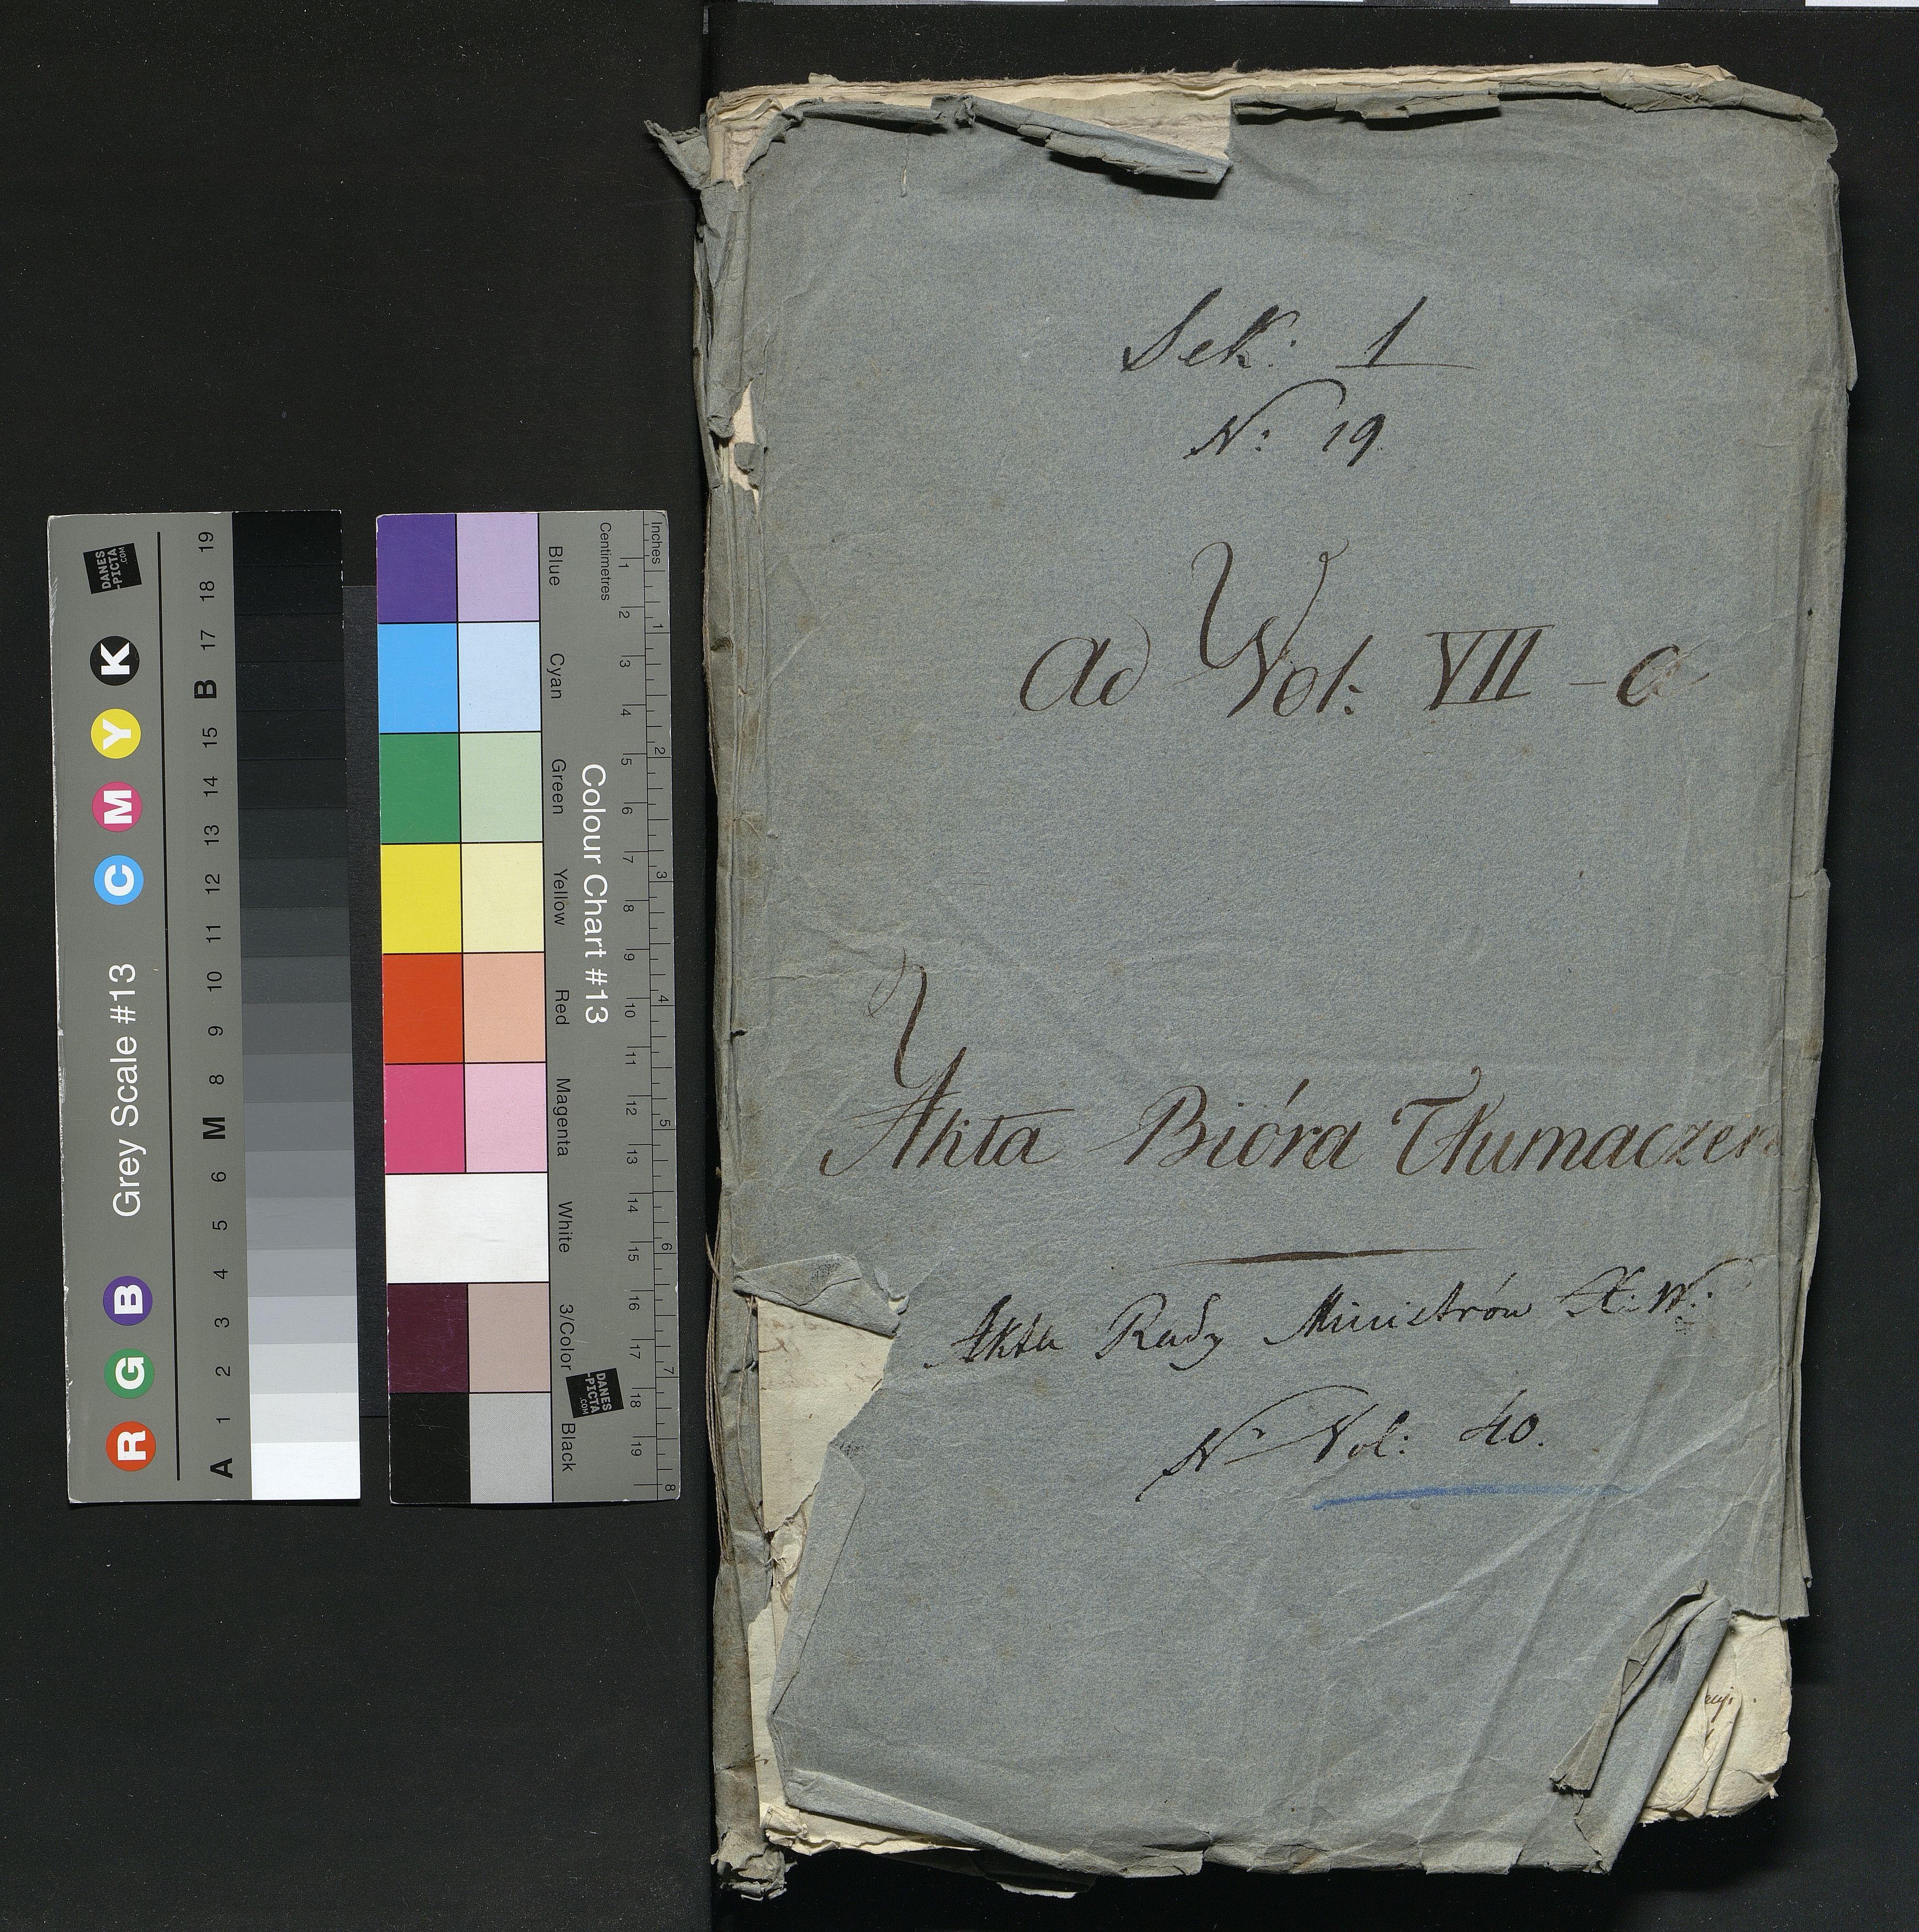 Sek: 1
N: 19.
ad Vol: VII - a
Akta Bióra Tłumaczeń
Akta Rady Ministrów X. W.
Nr Vol: 40.
Grey Scale #13
R G B C M Y K
A 1 2 3 4 5 6 M 8 9 10 11 12 13 14 15 B 17 18 19
DANES
-PICTA
.COM
Colour Chart #13
Blue Cyan Green Yellow Red Magenta White 3/Color Black
Centimetres 1 2 3 4 5 6 7 8 9 10 11 12 13 14 15 16 17 18 19
Inches 1 2 3 4 5 6 7 8
DANES
-PICTA
.COM